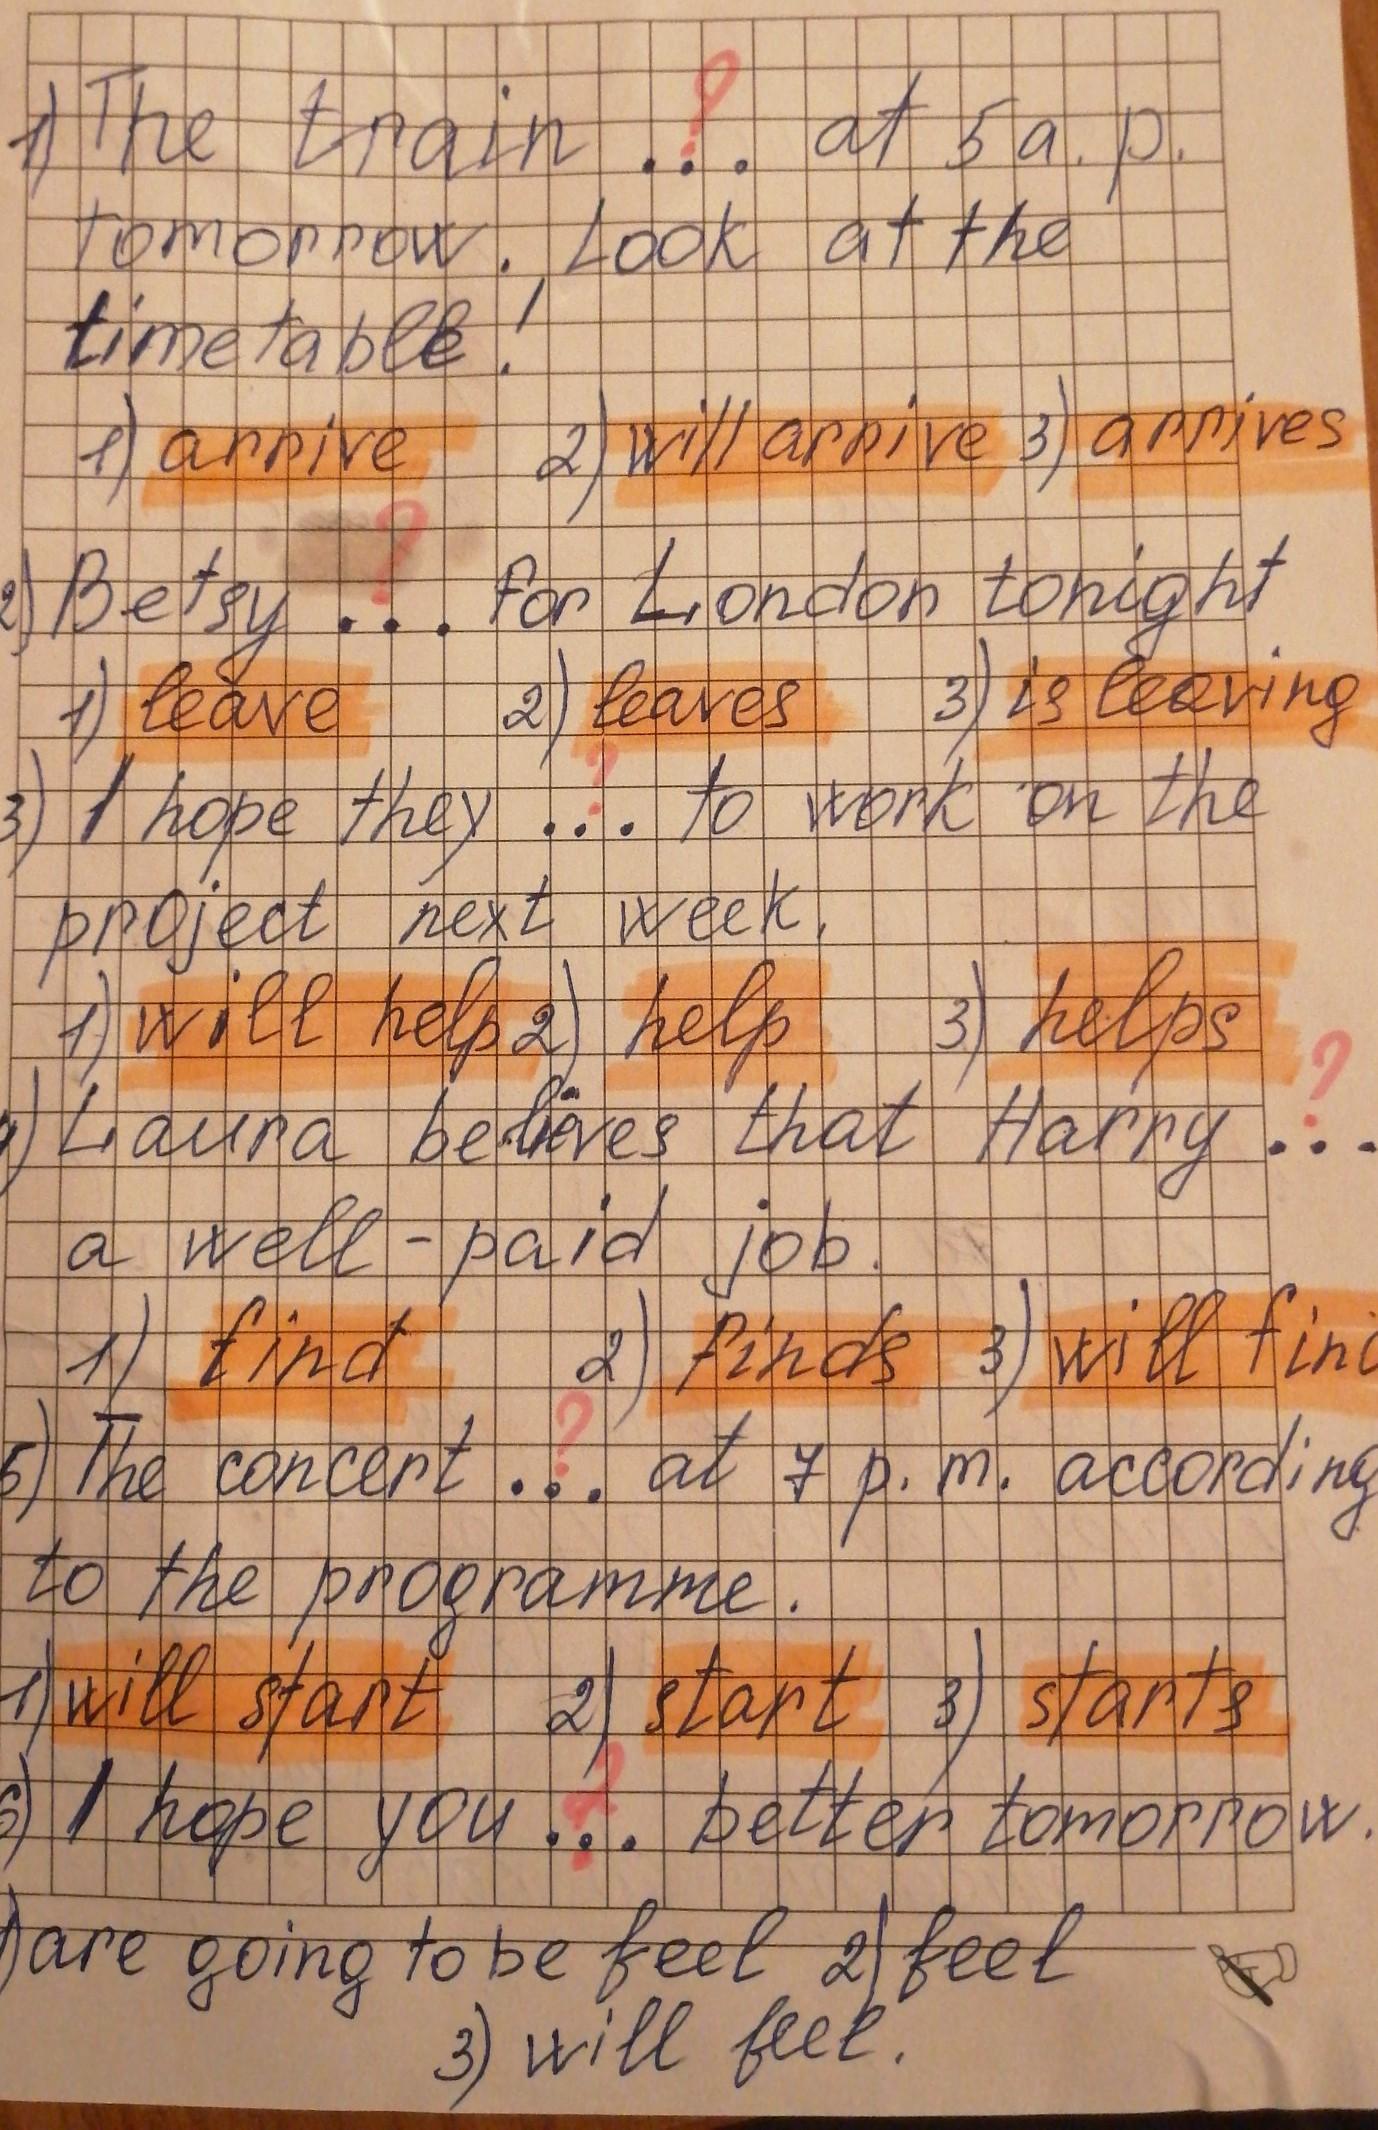 1) The train ...? at 5 a.p.
tomorrow. Look at the
timetable!
1) arrive 2) will arrive 3) arrives
2) Betsy ...? for London tonight
1) leave 2) leaves 3) is leaving
3) I hope they ...? to work on the
project next week.
1) will help 2) help 3) helps
4) Laura believes that Harry ...?
a well-paid job.
1) find 2) finds 3) will find
5) The concert ...? at 7 p.m. according
to the programme.
1) will start 2) start 3) starts
6) I hope you ...? better tomorrow.
1) are going to be feel 2) feel
3) will feel.